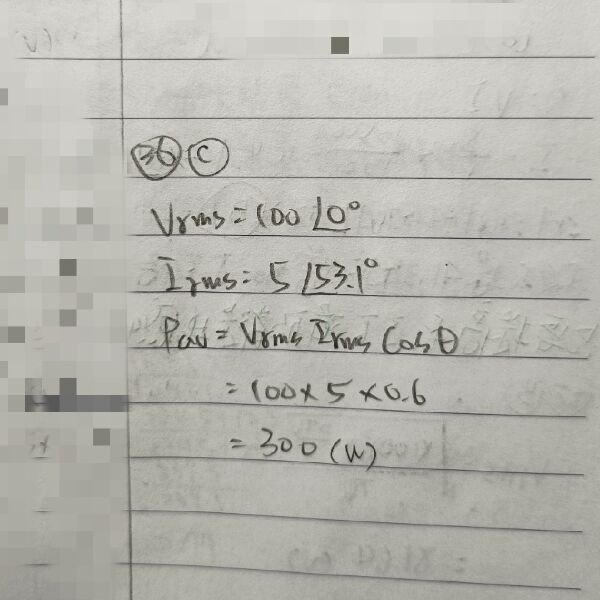 36 C
Vrms = 100 ∠0°
Irms = 5 ∠53.1°
Pav = Vrms Irms Cosθ
= 100 x 5 x 0.6
= 300 (W)